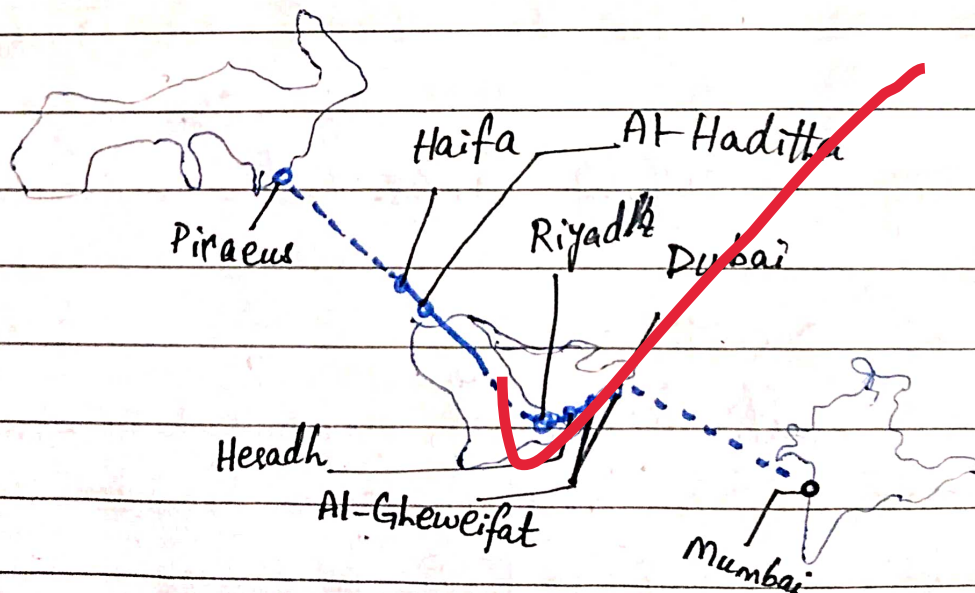 Haifa
Al-Haditha
Riyadh
Piraeus
Dubai
Heradh
Al-Gheweifat
Mumbai